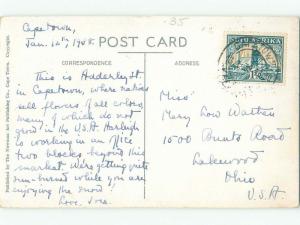 Capetown,
Jan. 12th, 1948.
POST CARD
35
CORRESPONDENCE
ADDRESS
This is Adderly St.
in Capetown, where natives
sell flowers of all colors,
many of which do not
grow in the U.S.A.
is working in an office
two blocks beyond this
market. We're getting quite
sun-burned while you are
enjoying the snow!
Love, Ira.
SOUTH AFRICA
Miss
Mary Lou Walten
1500 Bunts Road
Lakewood
Ohio
U.S.A.
Published by The Newman Art Publishing Co., Cape Town. Copyright.